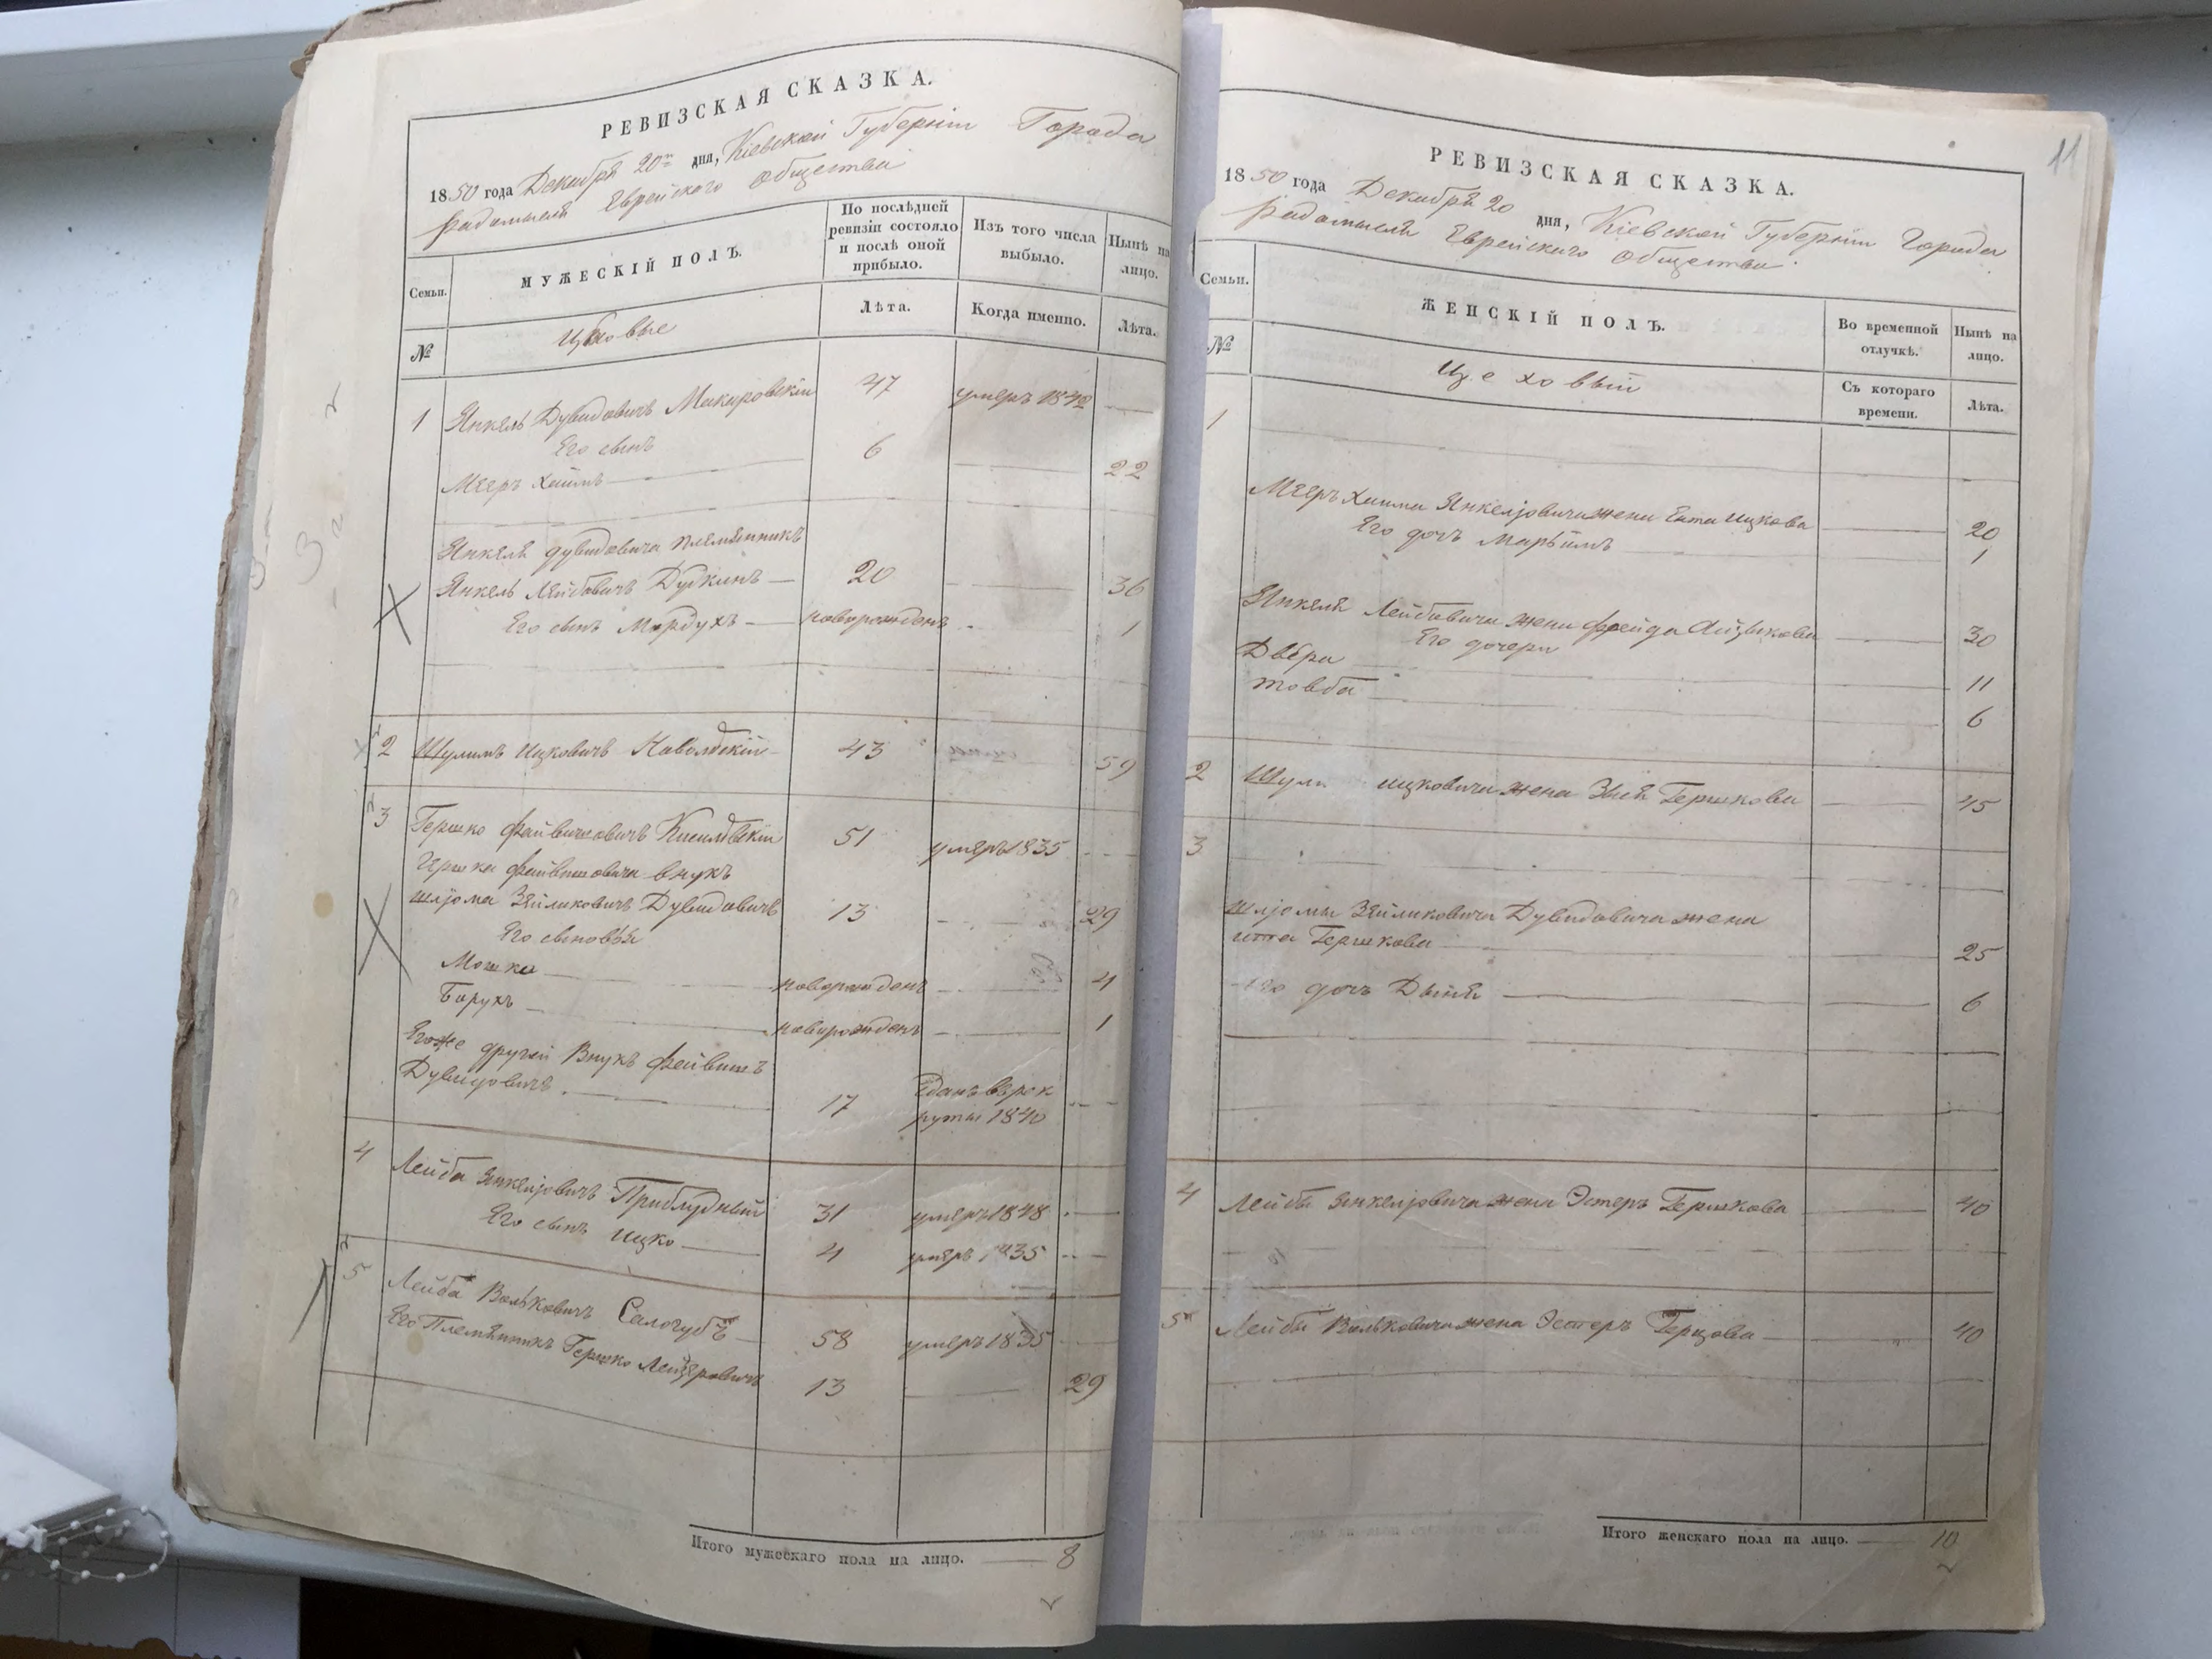 РЕВИЗСКАЯ СКАЗКА.
1850 года Декабря 20го дня, Кіевской Губерніи Города
Радомысля Еврейскаго Общества
Семьи.
МУЖЕСКІЙ ПОЛЪ.
По послѣдней ревизіи состояло и послѣ оной прибыло.
Изъ того числа выбыло.
Нынѣ на лицо.
№
Цѣховые
Лѣта.
Когда именно.
Лѣта.
1 Янкель Дувидовичъ Макаровскій 47 умеръ 1842
Его сынъ
Мееръ Хаимъ 6 22
Янкеля Дувидовича племянникъ
Янкель Лейбовичъ Дудкинъ 20 36
Его сынъ Мордухъ новорожденъ 1
2 Шулимъ Ицковичъ 43 59
3 Гершко Файвишовичъ 51 умеръ 1835
Гершка Файвишовича внукъ
Шліома Зейликовичъ Дувидовичъ 13 29
Его сыновья
Мошко новорожденъ 4
Борухъ новорожденъ 1
Егоже другой Внукъ Фейвишъ
Дувидовичъ 17 Зданъ въ рек
руты 1840
4 Лейба Янкеліовичъ Приблудный 31 умеръ 1848
Его сынъ Ицко 4 умеръ 1835
5 Лейба Вольковичъ Салогубъ 58 умеръ 1835
Его Племянникъ Гершко Лейзеровичъ 13 29
Итого мужескаго пола на лицо. 8
11
РЕВИЗСКАЯ СКАЗКА.
1850 года Декабря 20 дня, Кіевской Губерніи Города
Радомысля Еврейскаго Общества
Семьи.
ЖЕНСКІЙ ПОЛЪ.
Во временной отлучкѣ.
Нынѣ на лицо.
№
Цеховый
Съ котораго времени.
Лѣта.
1
Мееръ Хаима Янкеліовича жена Ента Ицкова 20
Его дочъ Марьямъ 1
Янкеля Лейбовича жена Фрейда Айзыкова 30
Его дочери
Двѣра 11
Товба 6
2 Шули ицковича жена Зыся Гершкова 45
3
Шліомы Зейликовича Дувидовича жена
итта Гершкова 25
Его дочъ Дыня 6
4 Лейбы Янкеліовича жена Эстеръ Гершкова 40
5 Лейбы Вольковича жена Эстеръ Герцова 40
Итого женскаго пола на лицо. 10